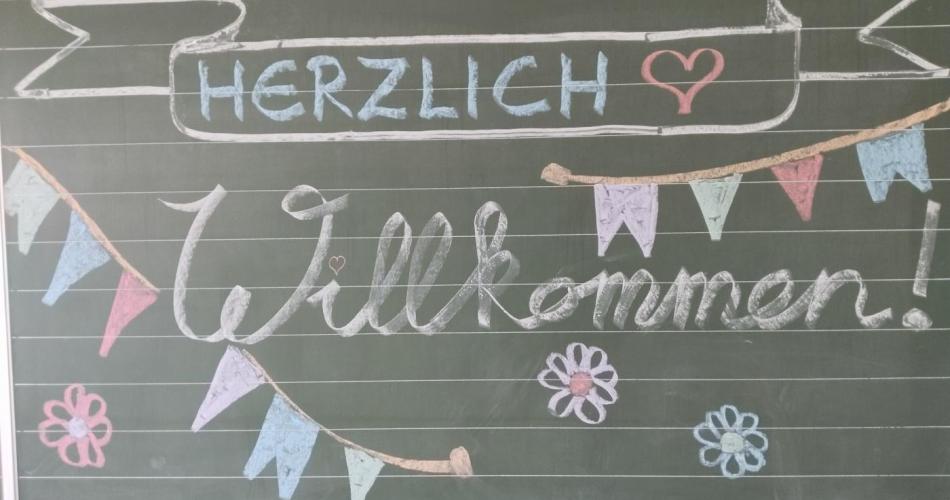 HERZLICH
Willkommen!